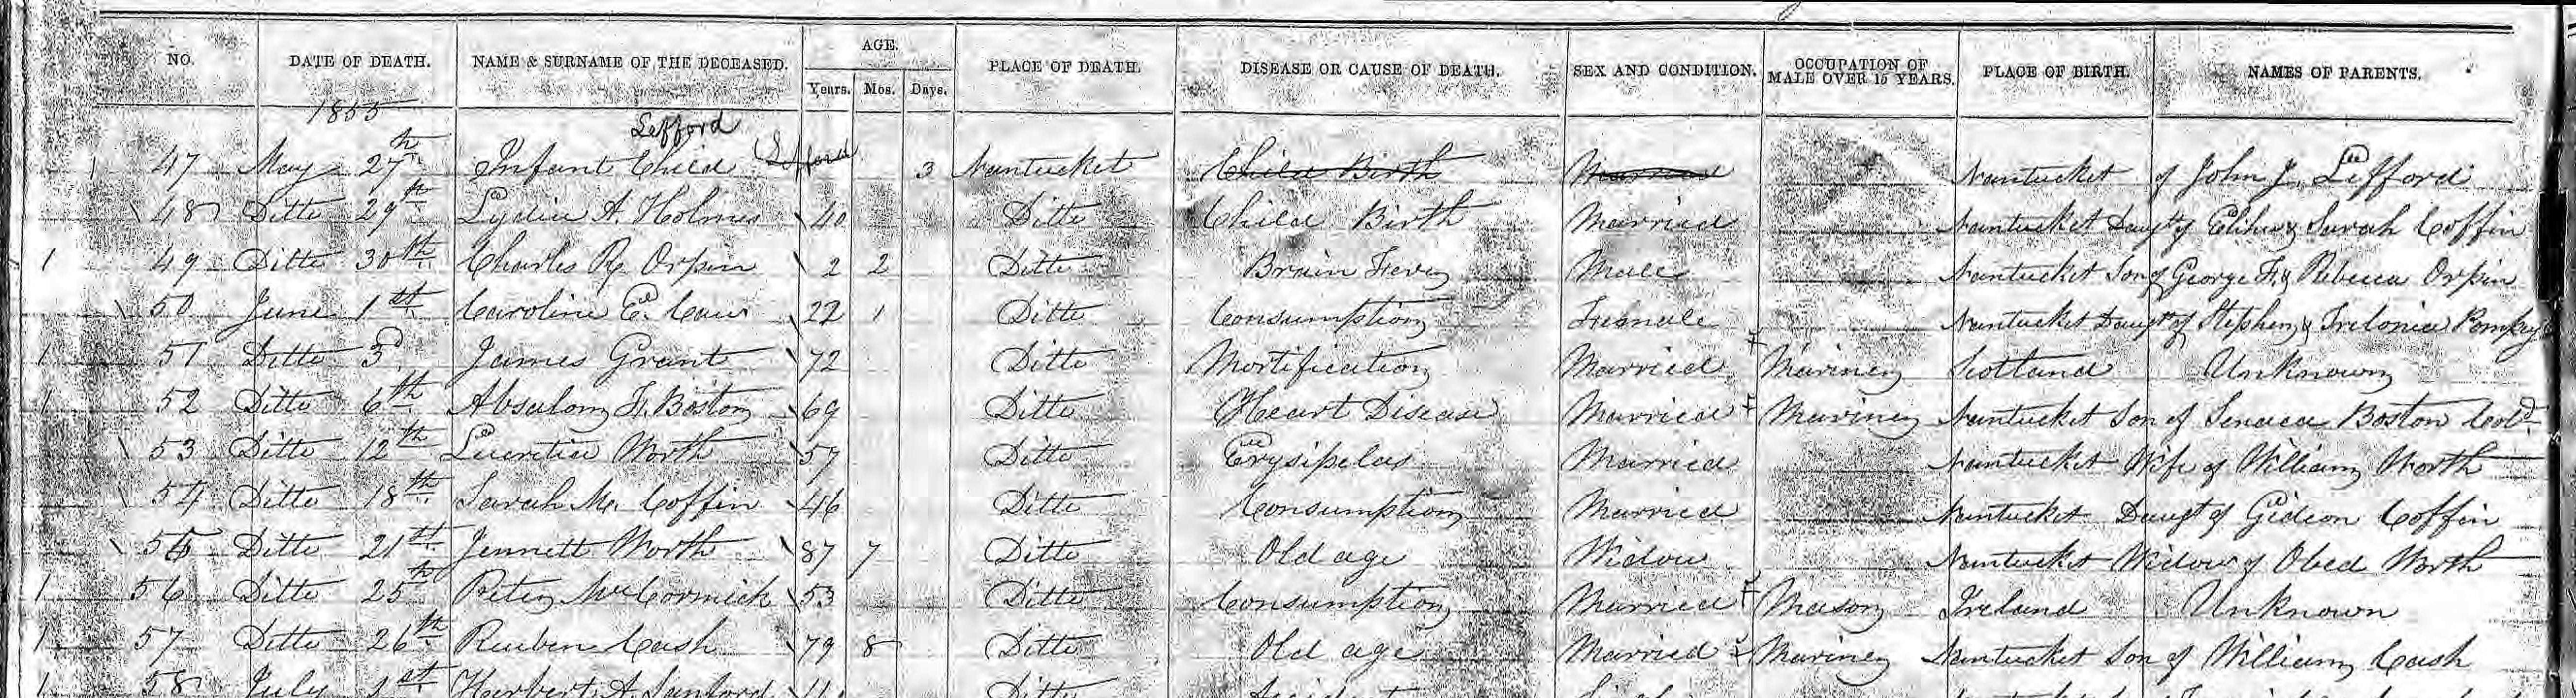 AGE.
NO. DATE OF DEATH. NAME & SURNAME OF THE DECEASED. Years. Mos. Days. PLACE OF DEATH. DISEASE OR CAUSE OF DEATH. SEX AND CONDITION. OCCUPATION OF MALE OVER 15 YEARS. PLACE OF BIRTH. NAMES OF PARENTS.
1855
Lefford
47 May 27th Infant Child 3 Nantucket Child Birth Married Nantucket of John J. Lefford
48 Ditto 29th Lydia A. Holmes 40 Ditto Child Birth Married Nantucket Daugt of Elihu & Sarah Coffin
1 49 Ditto 30th Charles R. Orpin 2 2 Ditto Brain Fever Male Nantucket Son of George F. & Rebecca Orpin
50 June 1st Caroline E. 22 1 Ditto Consumption Female Nantucket Daugt of Stephen & Pompey
1 51 Ditto 3d James Grant 72 Ditto Mortification Married Mariner Scotland Unknown
1 52 Ditto 6th Absalom F. Boston 69 Ditto Heart Disease Married Mariner Nantucket Son of Seneca Boston Cold.
53 Ditto 12th Lucretia Worth 57 Ditto Erysipelas Married Nantucket Wife of William Worth
54 Ditto 18th Sarah M. Coffin 46 Ditto Consumption Married Nantucket Daugt of Gideon Coffin
55 Ditto 21st Jennett Worth 87 7 Ditto Old age Widow Nantucket Widow of Obed Worth
1 56 Ditto 25th Peter McCormick 53 Ditto Consumption Married Mason Ireland Unknown
1 57 Ditto 26th Reuben Cash 79 8 Ditto Old age Married Mariner Nantucket Son of William Cash
1 58 July 1st Herbert A. Sanford 11 Ditto Accident